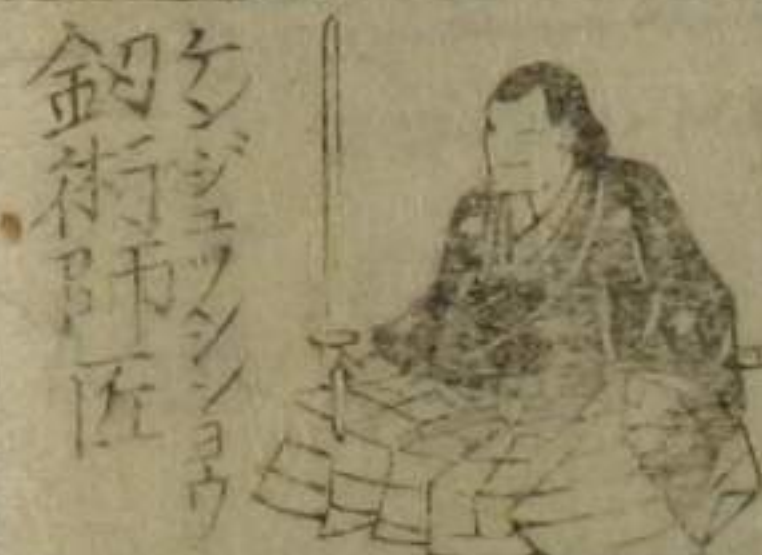 ケンジュツシシヨウ
釼術師匠